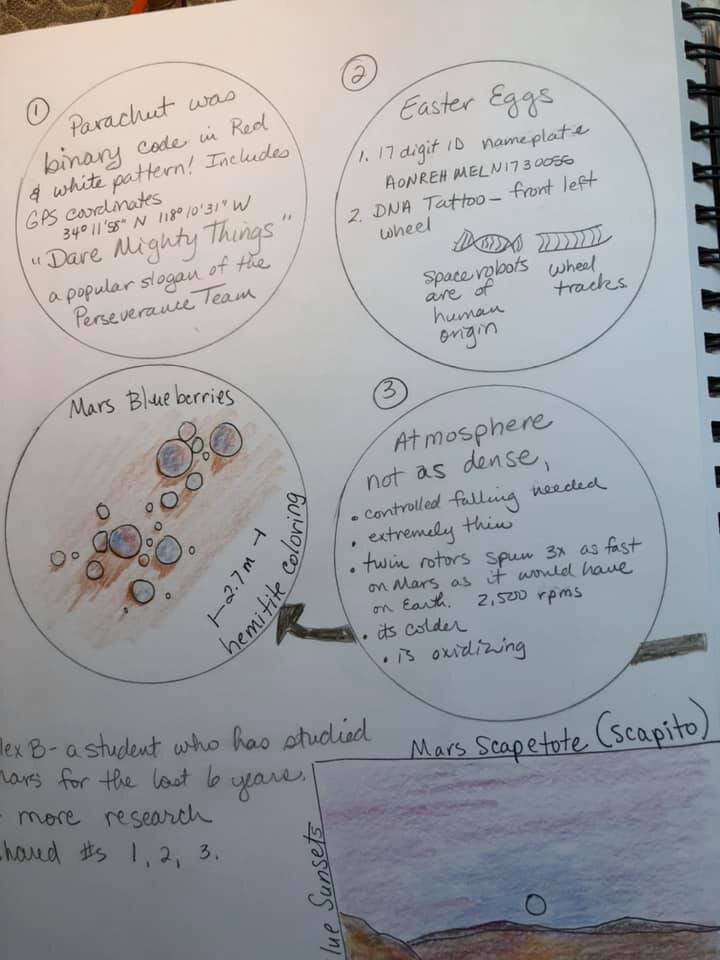 1
Parachut was
binary code in Red
& white pattern! Includes
GPS coordinates
34° 11'58" N 118° 10'31" W
"Dare Mighty Things"
a popular slogan of the
Perseverance Team
2
Easter Eggs
1. 17 digit ID nameplate
AONREHMELN1730056
2. DNA Tattoo - front left
wheel
Space robots
are of
human
origin
wheel
tracks
Mars Blueberries
2.7 m
hemitite coloring
3
Atmosphere
not as dense,
• controlled falling needed
• extremely thin
• twin rotors spun 3x as fast
on Mars as it would have
on Earth. 2,500 rpms
• its colder
• is oxidizing
lex B - a student who has studied
ars for the last 6 years.
more research
hared #s 1, 2, 3.
Mars Scapetote (scapito)
lue Sunsets